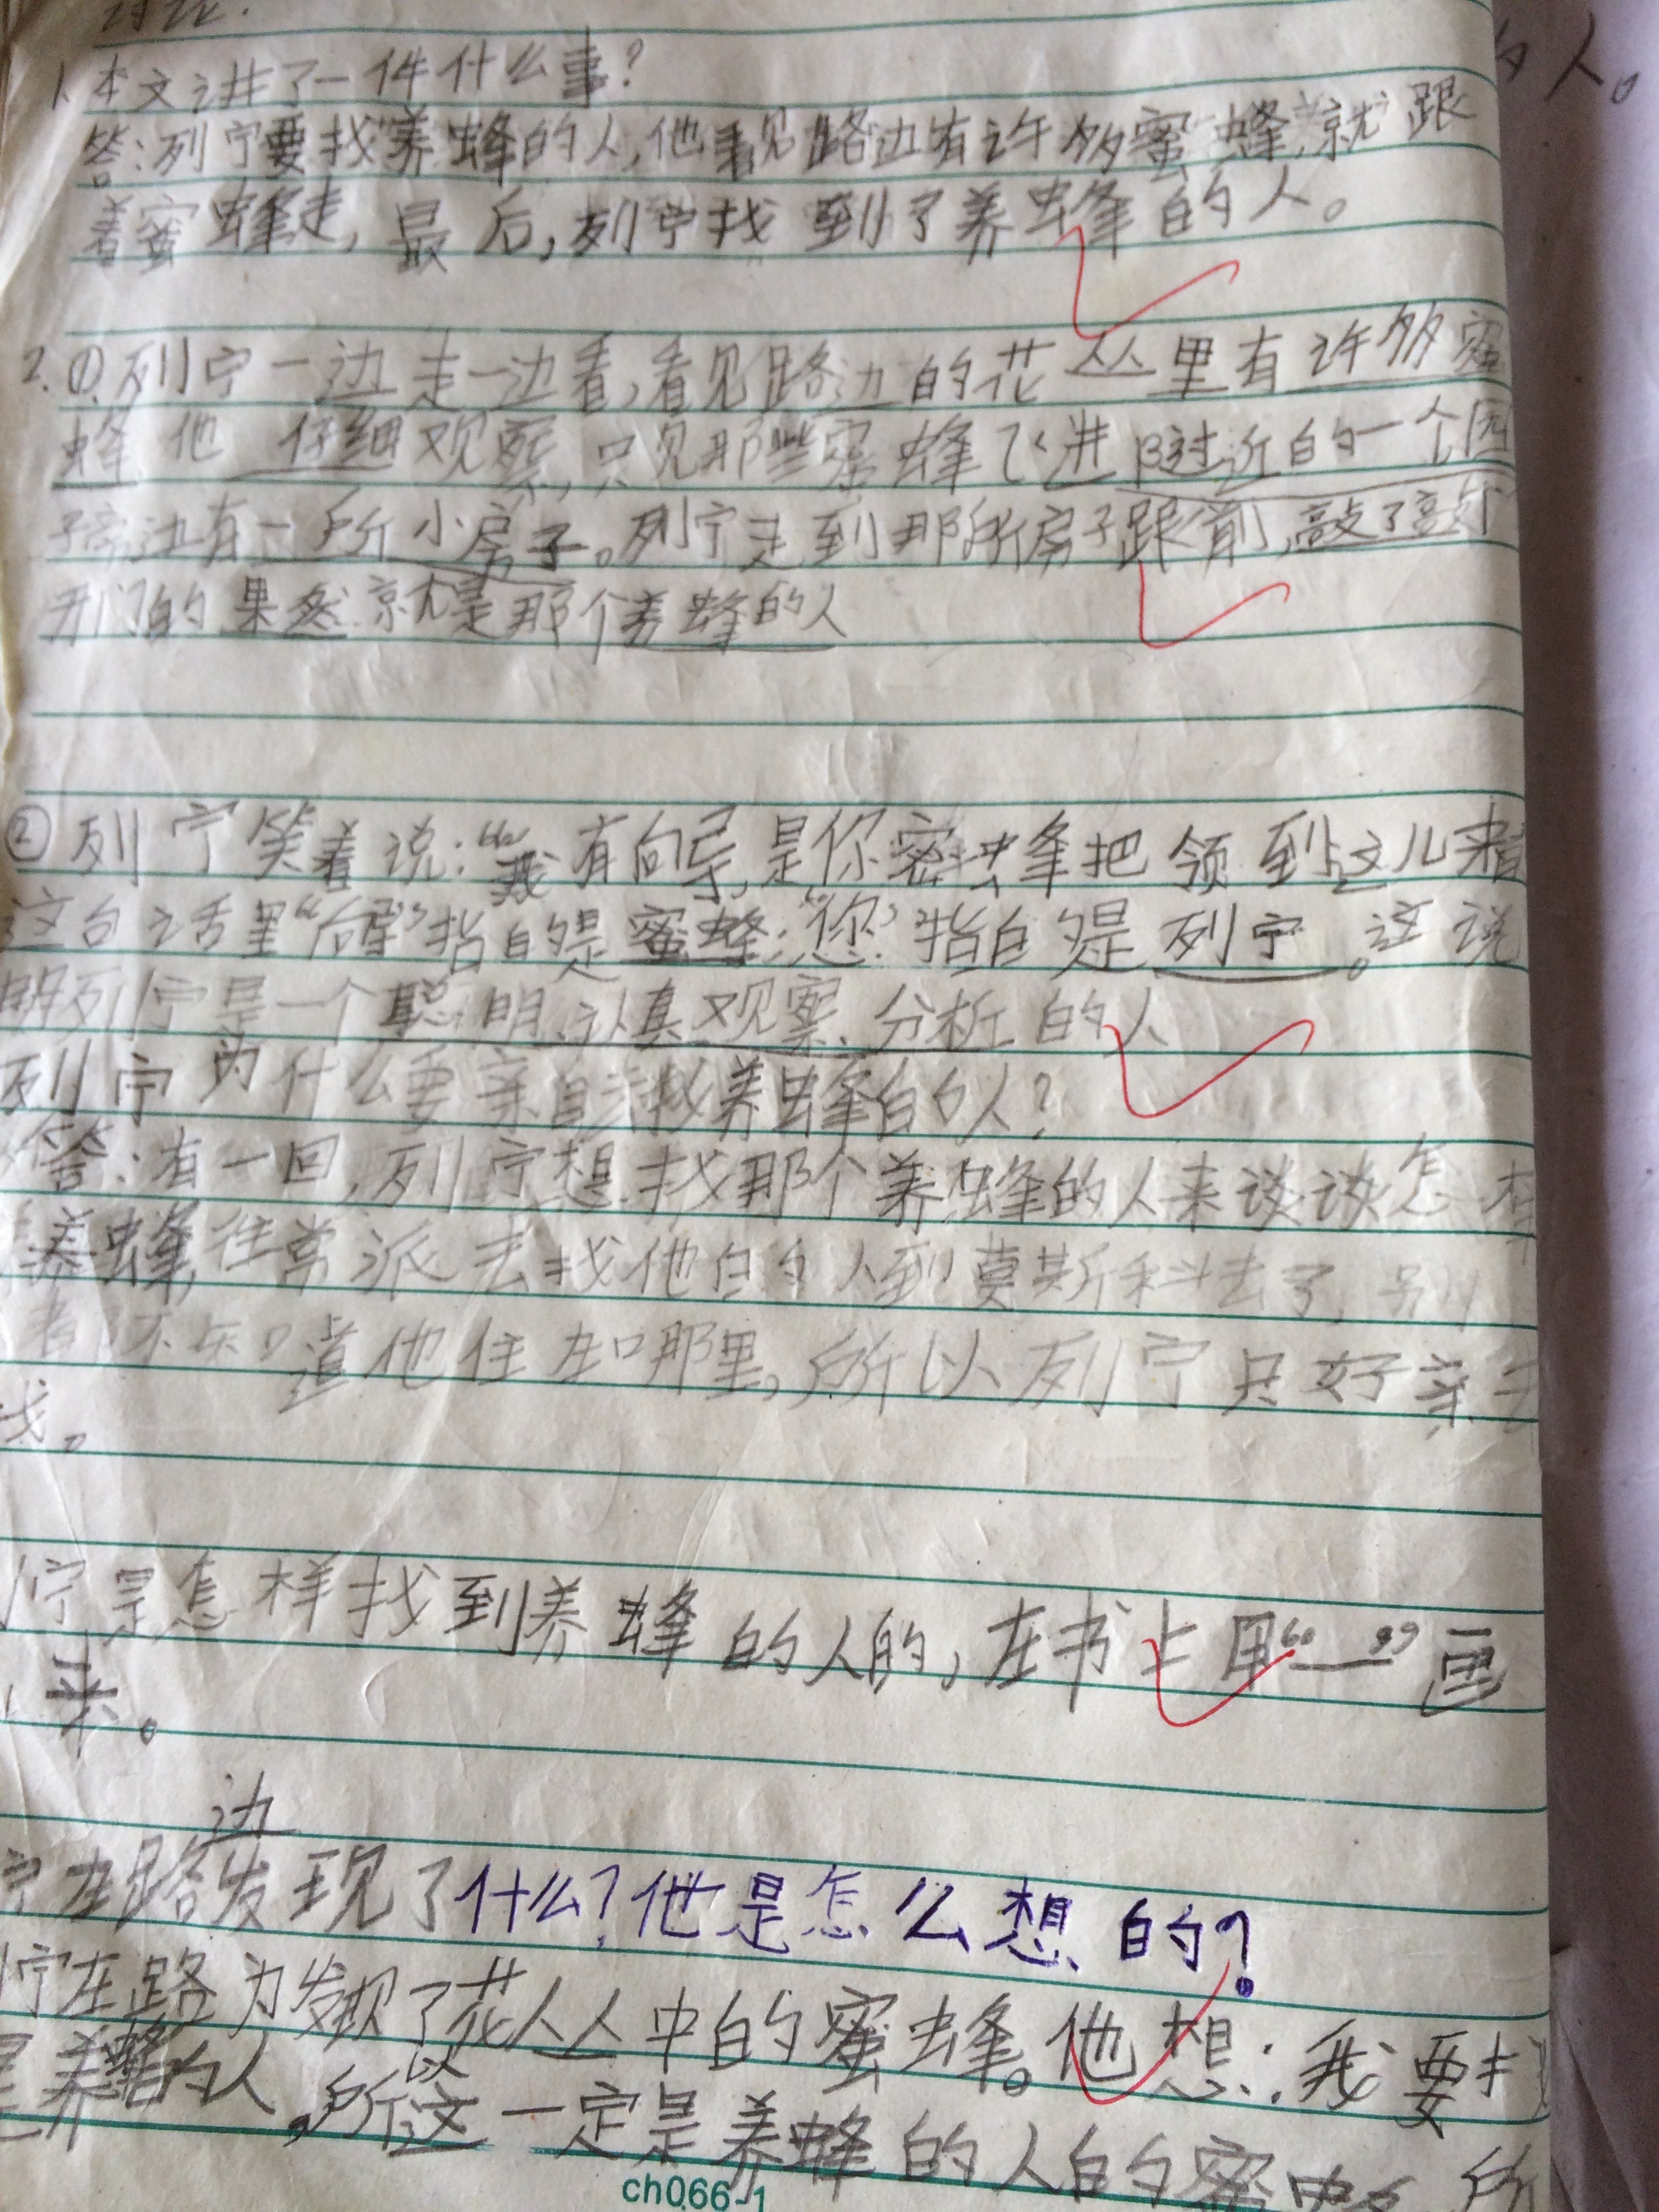 讨论.
1、本文讲了一件什么事?
答:列宁要找养蜂的人,他看见路边有许多蜜蜂,就跟
着蜜蜂走,最后,列宁找到了养蜂的人。
2.①列宁一边走一边看,看见路边的花丛里有许多蜜
蜂他仔细观察,只见那些蜜蜂飞进附近的一个园
子旁边有一所小房子。列宁走到那所房子跟前,敲了敲
开门的果然就是那个养蜂的人
②列宁笑着说:“我有向导,是你蜜蜂把领到这儿来
这句话里“向导”指的是蜜蜂;“你”指的是列宁。这说
明列宁是一个聪明、认真观察、分析的人
列宁为什么要亲自去找养蜂的人?
答:有一回,列宁想找那个养蜂的人来谈谈怎样
养蜂,往常派去找他的人到莫斯科去了,别
者不知道他住在那里,所以列宁只好亲去
找。
宁是怎样找到养蜂的人的,在书上用“__”画
来。
边
宁在路发现了什么?他是怎么想的?
宁在路为发现了花丛中的蜜蜂。他想:我要找
是养蜂的人,所以这一定是养蜂的人的蜜蜂 所
ch066-1
的人。